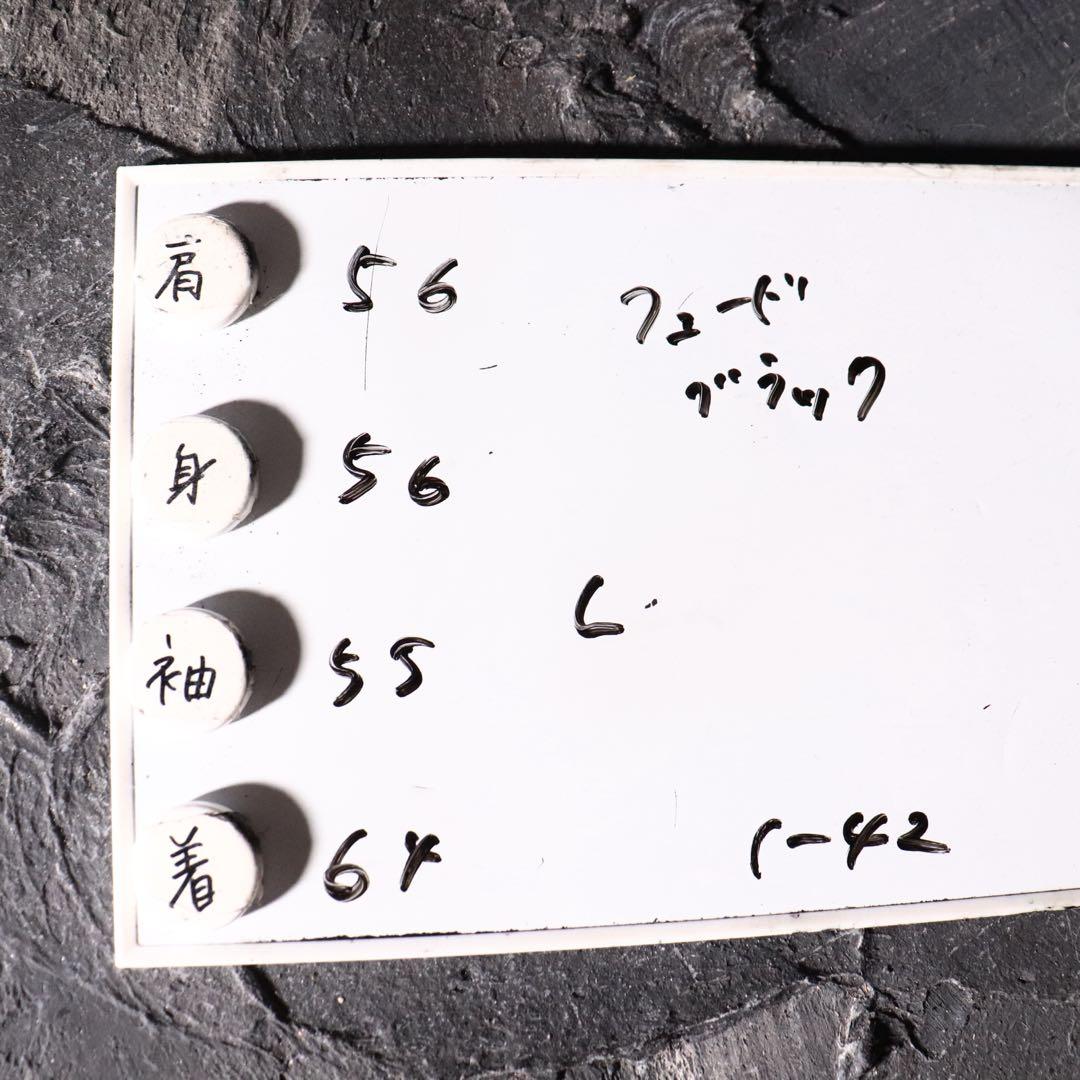 肩 56
フェード
ブラック
身 56
L
袖 55
着 64
1-42